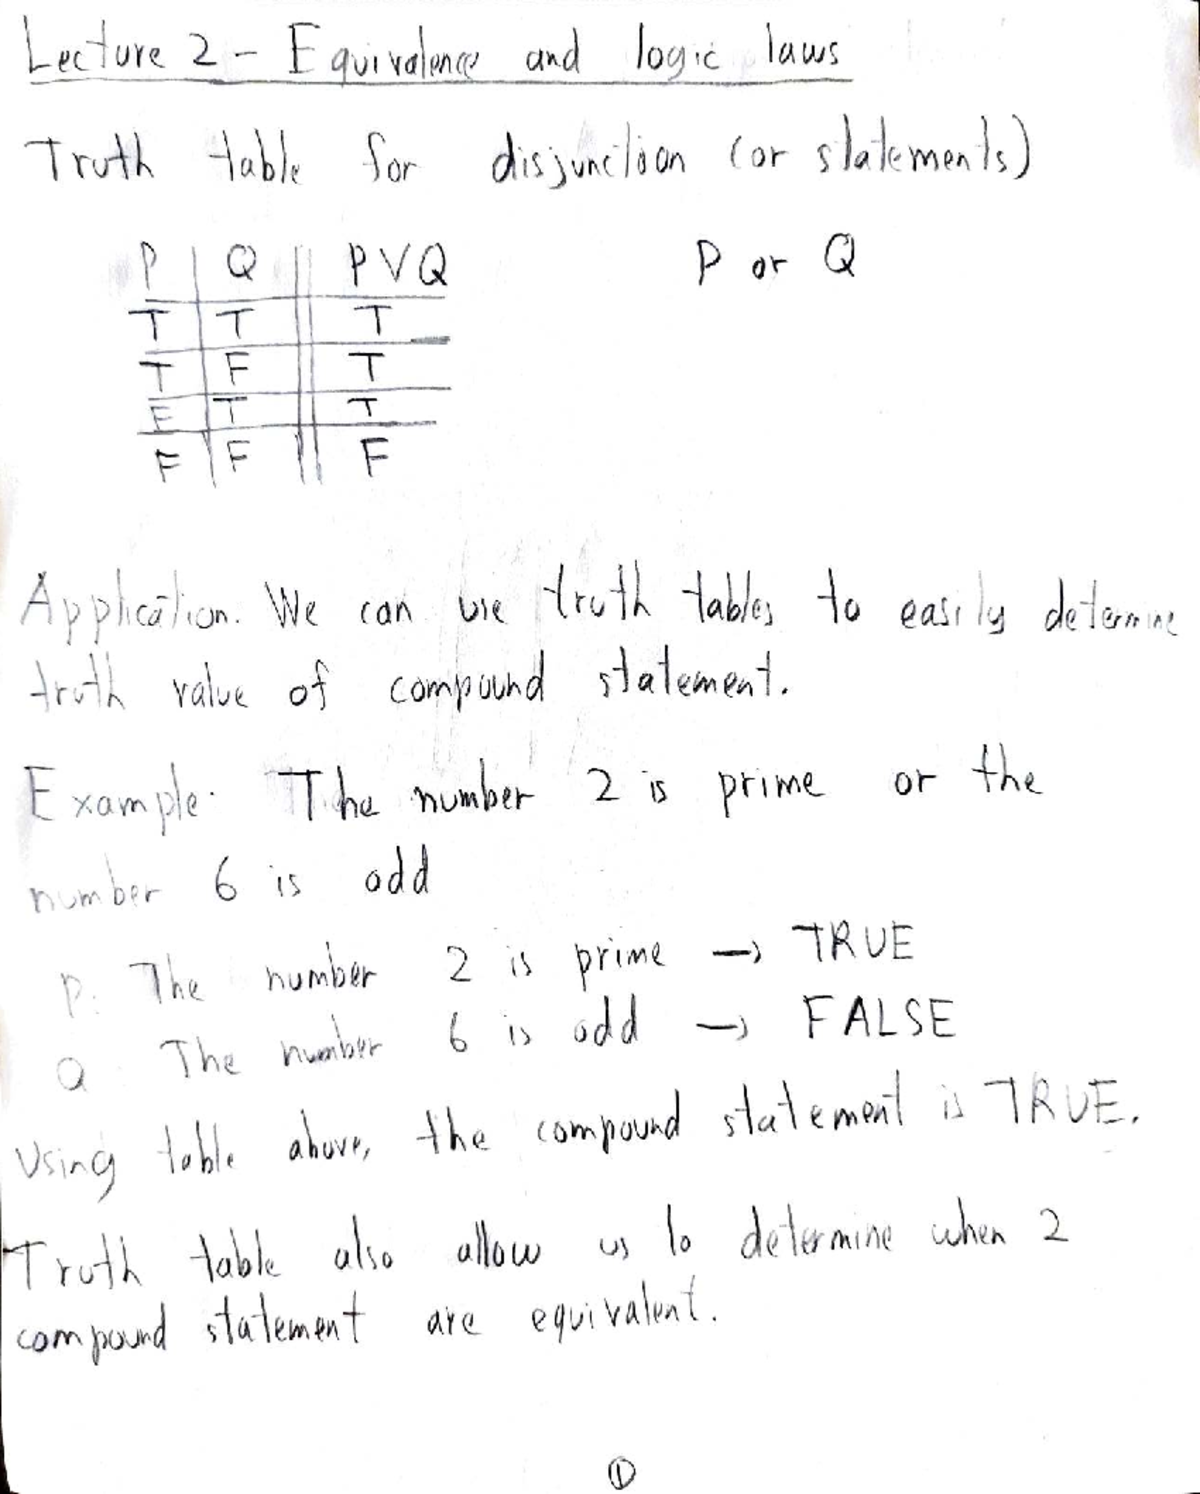 Lecture 2 - Equivalence and logic laws
Truth table for disjunction (or statements)
P Q P V Q P or Q
T T T
T F T
F T T
F F F
Application. We can use truth tables to easily determine
truth value of compound statement.
Example. The number 2 is prime or the
number 6 is odd
P: The number 2 is prime → TRUE
Q The number 6 is odd → FALSE
Using table above, the compound statement is TRUE.
Truth table also allow us to determine when 2
compound statement are equivalent.
①